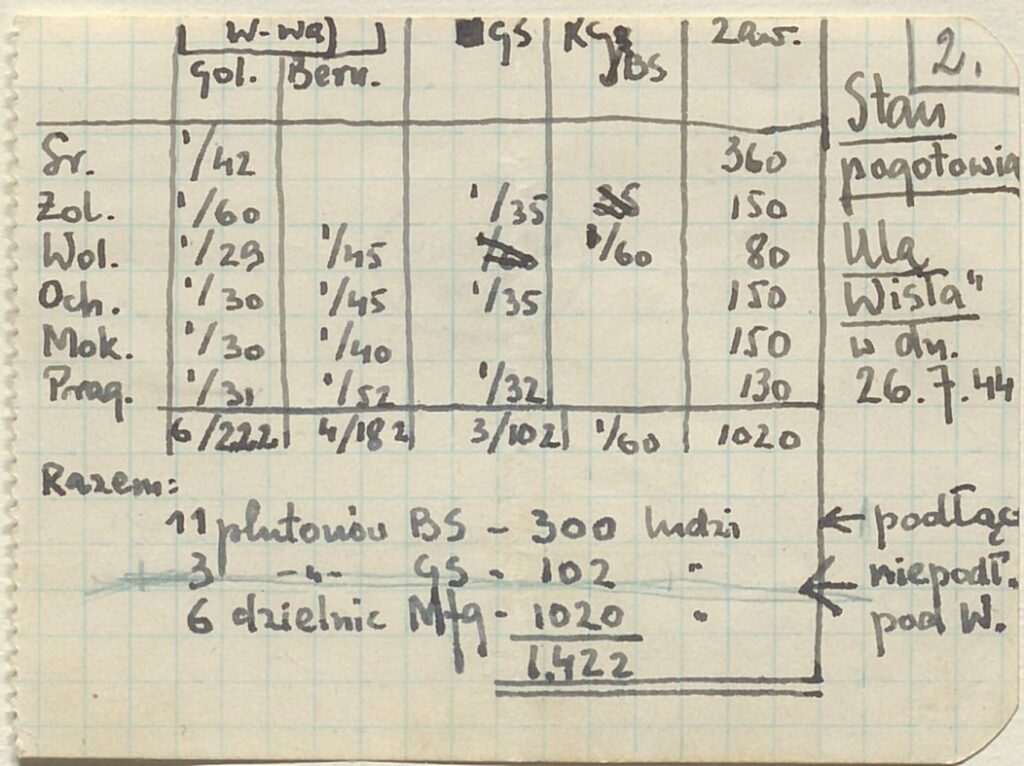 W-wa GS KG 2.
Gol. Bern. /BS Zaw.
Śr. 1/42 360
Żol. 1/60 1/35 150
Wol. 1/29 1/45 1/60 80
Och. 1/30 1/45 1/35 150
Mok. 1/30 1/40 150
Prag. 1/31 1/52 1/32 130
6/222 4/182 3/102 1/60 1020
Stan
pogotowia
Ula
Wisła"
w dn.
26.7.44
Razem:
11 plutonów BS - 300 ludzi ← podłącz
3 -"- GS - 102 " ← niepodł.
6 dzielnic - 1020 " pod W.
1.422